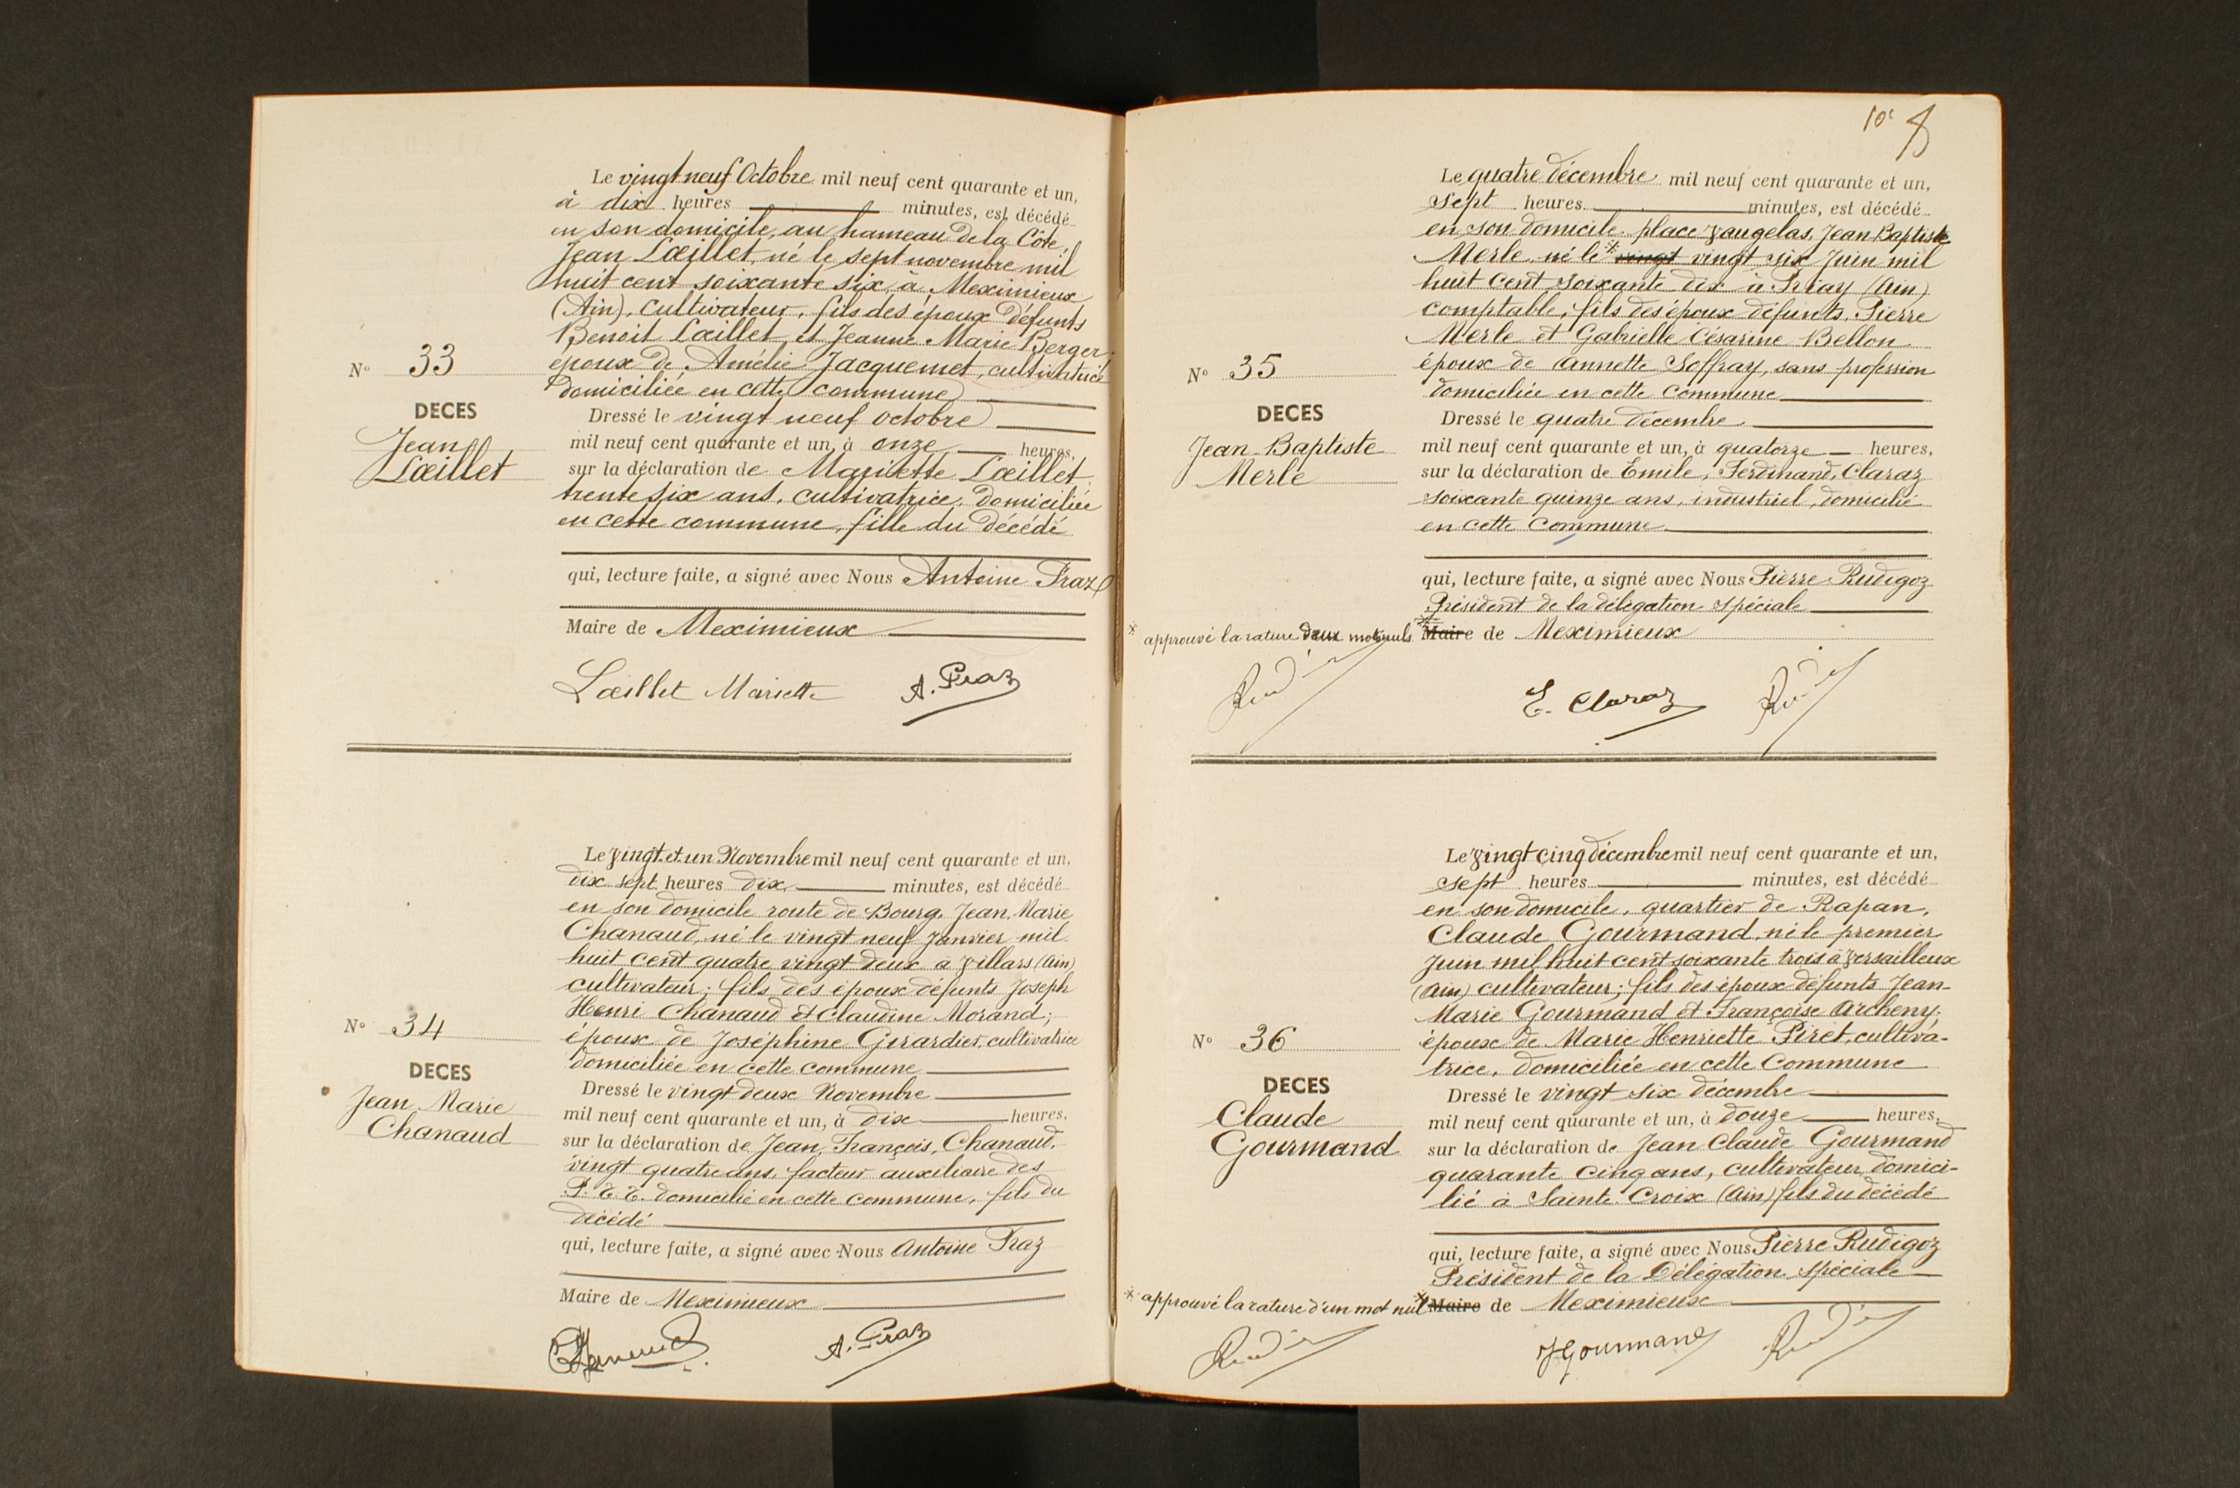 Le vingt neuf Octobre mil neuf cent quarante et un,
à dix heures minutes, est décédé
en son domicile, au hameau de la Côte,
Jean Lœillet, né le sept novembre mil
huit cent soixante six, à Meximieux
(Ain), cultivateur, fils des époux défunts
Benoit Lœillet et Jeanne Marie Berger;
époux de Amélie Jacquemet, cultivatrice
domiciliée en cette commune
N° 33
DECES
Jean
Lœillet
Dressé le vingt neuf octobre
mil neuf cent quarante et un, à onze heures,
sur la déclaration de Mariette Lœillet,
trente six ans, cultivatrice, domiciliée
en cette commune, fille du décédé
qui, lecture faite, a signé avec Nous Antoine Praz
Maire de Meximieux
Lœillet Mariette A. Praz
Le vingt et un Novembre mil neuf cent quarante et un,
dix sept heures dix minutes, est décédé
en son domicile route de Bourg, Jean, Marie
Chanaud, né le vingt neuf Janvier mil
huit cent quatre vingt deux à Villars (Ain)
cultivateur; fils des époux défunts Joseph
Henri Chanaud et Claudine Morand;
époux de Joséphine Girardier, cultivatrice
domiciliée en cette commune
N° 34
DECES
Jean Marie
Chanaud
Dressé le vingt deux Novembre
mil neuf cent quarante et un, à dix heures,
sur la déclaration de Jean, François, Chanaud,
vingt quatre ans, facteur auxiliaire des
P. T. T. domicilié en cette commune, fils du
décédé
qui, lecture faite, a signé avec Nous Antoine Praz
Maire de Meximieux
A. Praz
10e
Le quatre décembre mil neuf cent quarante et un,
sept heures minutes, est décédé
en son domicile place Vaugelas, Jean Baptiste
Merle né le * vingt vingt six Juin mil
huit cent soixante dix à Priay (Ain)
comptable; fils des époux défunts, Pierre
Merle et Gabrielle Césarine Bellon
époux de Annette Soffray, sans profession
domiciliée en cette commune
N° 35
DECES
Jean Baptiste
Merle
Dressé le quatre décembre
mil neuf cent quarante et un, à quatorze heures,
sur la déclaration de Emile, Ferdinand, Claraz
soixante quinze ans, industriel, domicilié
en cette commune
qui, lecture faite, a signé avec Nous Pierre Rudigoz
Président de la délégation spéciale
* approuvé la rature deux mots nuls * Maire de Meximieux
E. Claraz
Le Vingt cinq décembre mil neuf cent quarante et un,
sept heures minutes, est décédé
en son domicile, quartier de Rapan,
Claude Gourmand, né le premier
Juin mil huit cent soixante trois à Versailleux
(Ain) cultivateur; fils des époux défunts Jean-
Marie Gourmand et Françoise Archeny;
époux de Marie Henriette Piret, cultiva-
trice, domiciliée en cette Commune
N° 36
DECES
Claude
Gourmand
Dressé le vingt six décembre
mil neuf cent quarante et un, à douze heures,
sur la déclaration de Jean Claude Gourmand
quarante cinq ans, cultivateur, domici-
lié à Sainte Croix (Ain) fils du décédé
qui, lecture faite, a signé avec Nous Pierre Rudigoz
Président de la Délégation Spéciale
* approuvé la rature d'un mot nul * Maire de Meximieux
J Gourmand